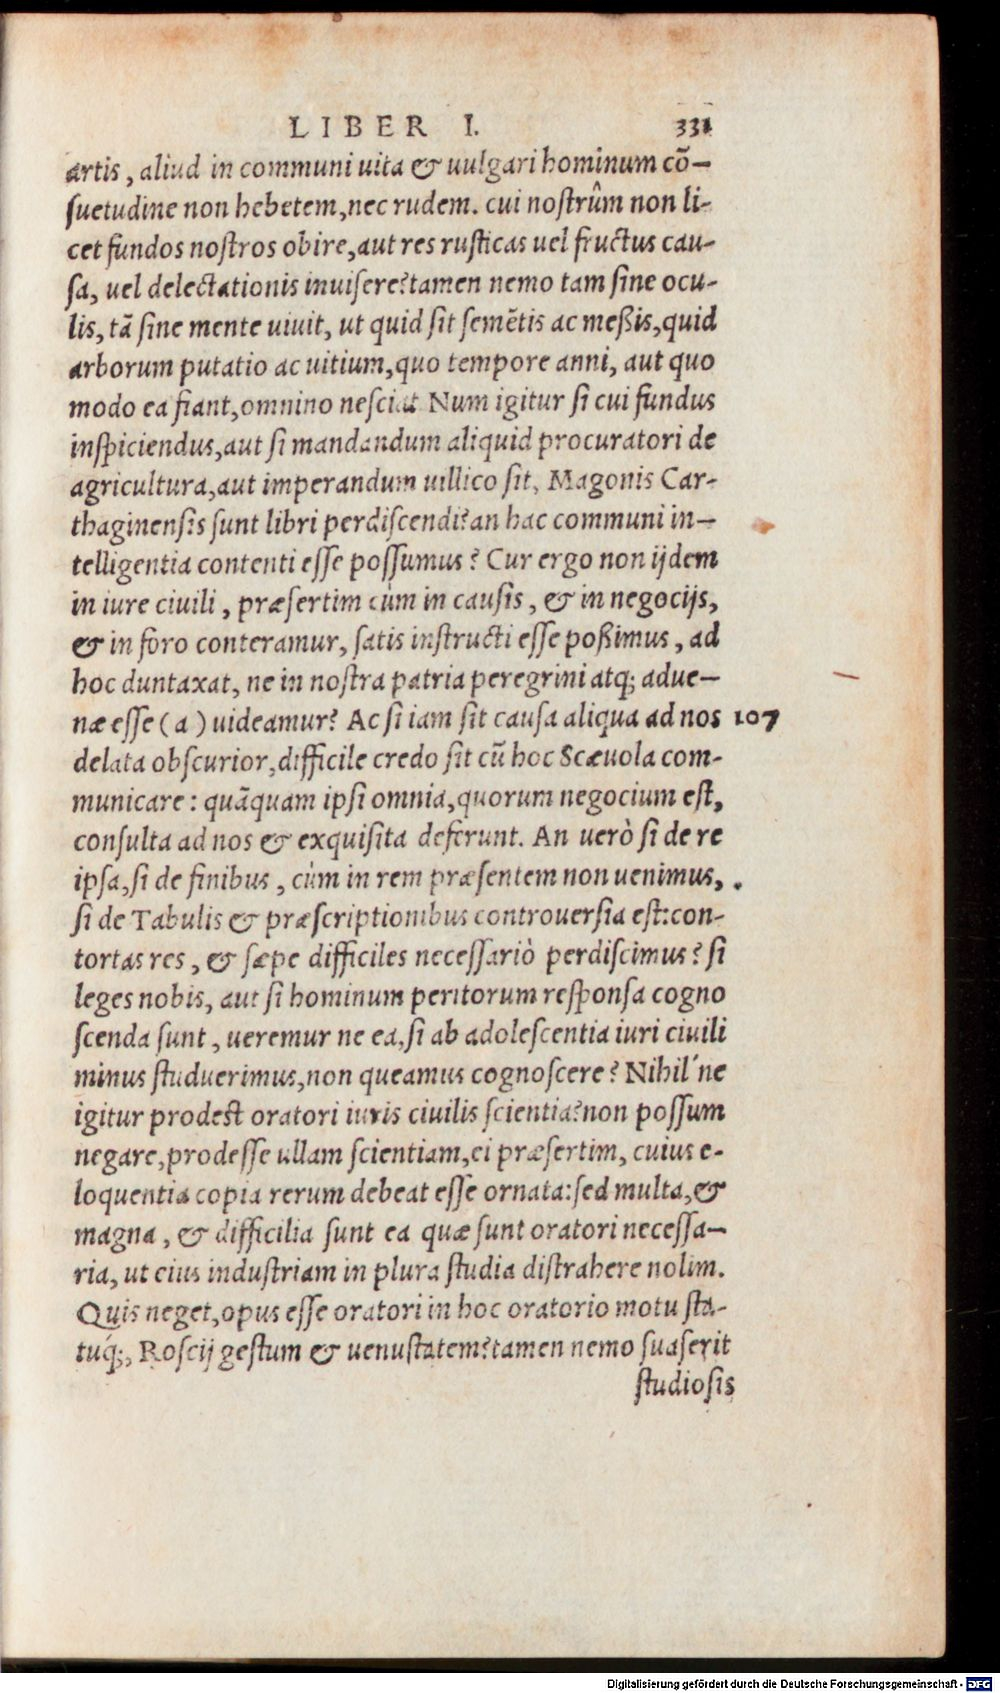 LIBER I. 331
artis, aliud in communi uita & uulgari hominum cõ-
suetudine non hebetem, nec rudem. cui nostrûm non li-
cet fundos nostros obire, aut res rusticas uel fructus cau-
sa, uel delectationis inuisere? tamen nemo tam sine ocu-
lis, tã sine mente uiuit, ut quid sit semẽtis ac meßis, quid
arborum putatio ac uitium, quo tempore anni, aut quo
modo ea fiant, omnino nesciat Num igitur si cui fundus
inspiciendus, aut si mandandum aliquid procuratori de
agricultura, aut imperandum uillico sit, Magonis Car-
thaginensis sunt libri perdiscendi? an hac communi in-
telligentia contenti esse possumus? Cur ergo non ijdem
in iure ciuili, præsertim cùm in causis, & in negocijs,
& in foro conteramur, satis instructi esse poßimus, ad
hoc duntaxat, ne in nostra patria peregrini atq; adue-
næ esse (a) uideamur? Ac si iam sit causa aliqua ad nos 107
delata obscurior, difficile credo sit cũ hoc Scæuola com-
municare: quãquam ipsi omnia, quorum negocium est,
consulta ad nos & exquisita deferunt. An uerò si de re
ipsa, si de finibus, cùm in rem præsentem non uenimus,
si de Tabulis & præscriptionibus controuersia est: con-
tortas res, & sæpe difficiles necessariò perdiscimus? si
leges nobis, aut si hominum peritorum responsa cogno
scenda sunt, ueremur ne ea, si ab adolescentia iuri ciuili
minus studuerimus, non queamus cognoscere? Nihil´ne
igitur prodest oratori iuris ciuilis scientia? non possum
negare, prodesse ullam scientiam, ei præsertim, cuius e-
loquentia copia rerum debeat esse ornata: sed multa, &
magna, & difficilia sunt ea quæ sunt oratori necessa-
ria, ut eius industriam in plura studia distrahere nolim.
Quis neget, opus esse oratori in hoc oratorio motu sta-
tuq́;, Roscij gestum & uenustatem? tamen nemo suaserit
studiosis
Digitalisierung gefördert durch die Deutsche Forschungsgemeinschaft - DFG